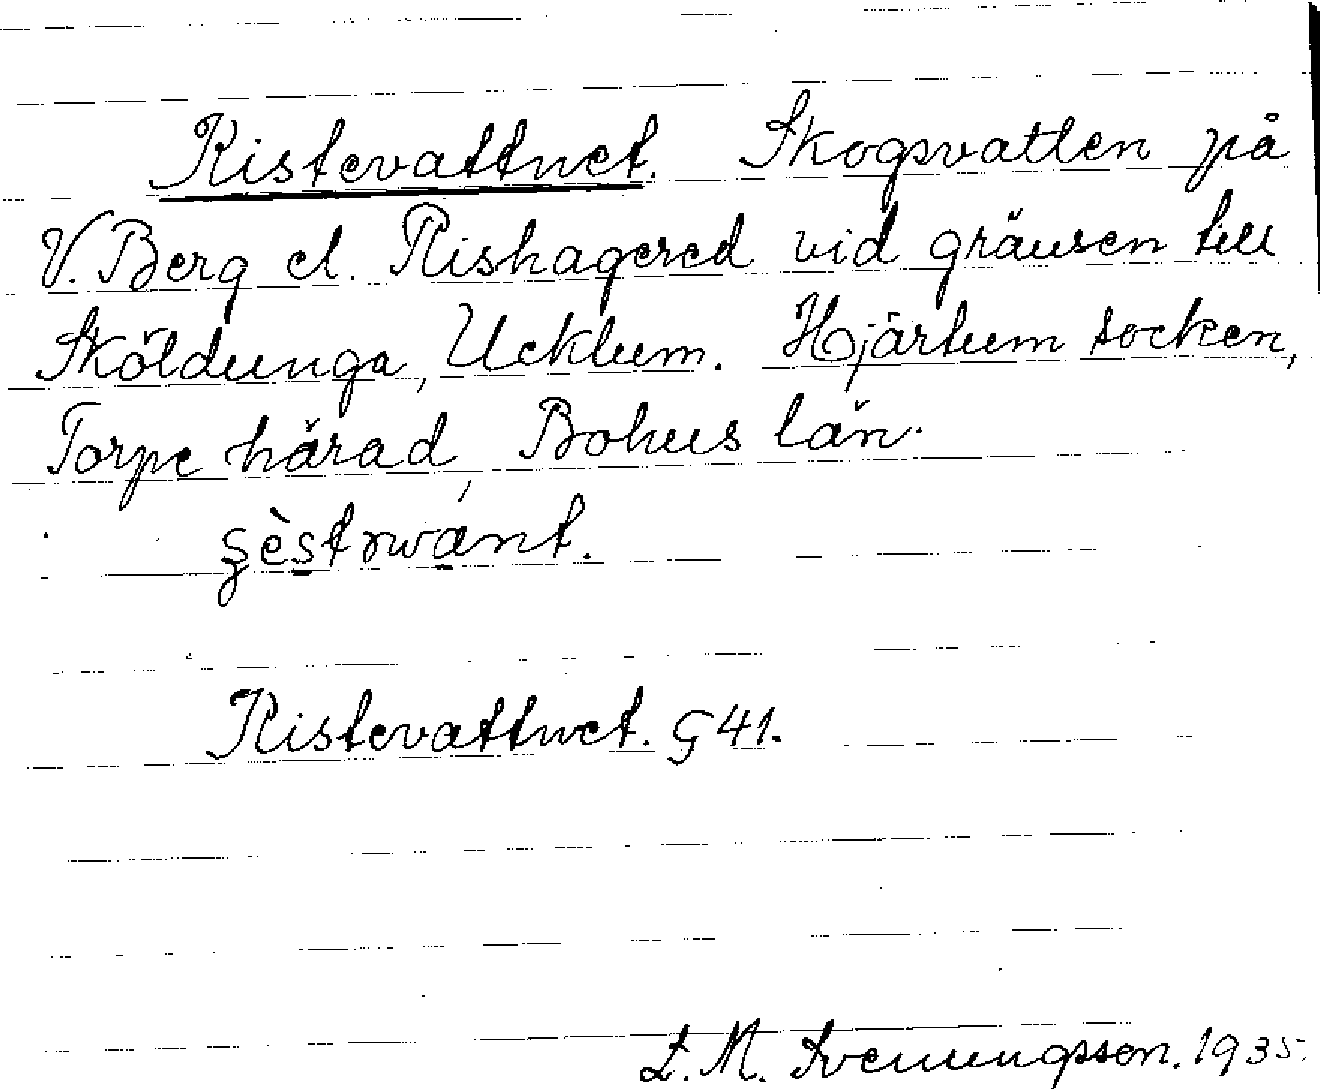 Kistevattnet. Skogsvatten på
V. Berg el. Rishagered vid gränsen till
Sköldunga, Ucklum. Hjärtum socken,
Torpe härad, Bohus län.
Kistevattnet. G 41.
L. M. Svenungsson. 1935.